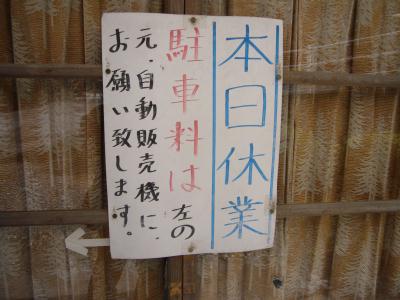 本日休業
駐車料は左の
元、自動販売機に、
お願い致します。